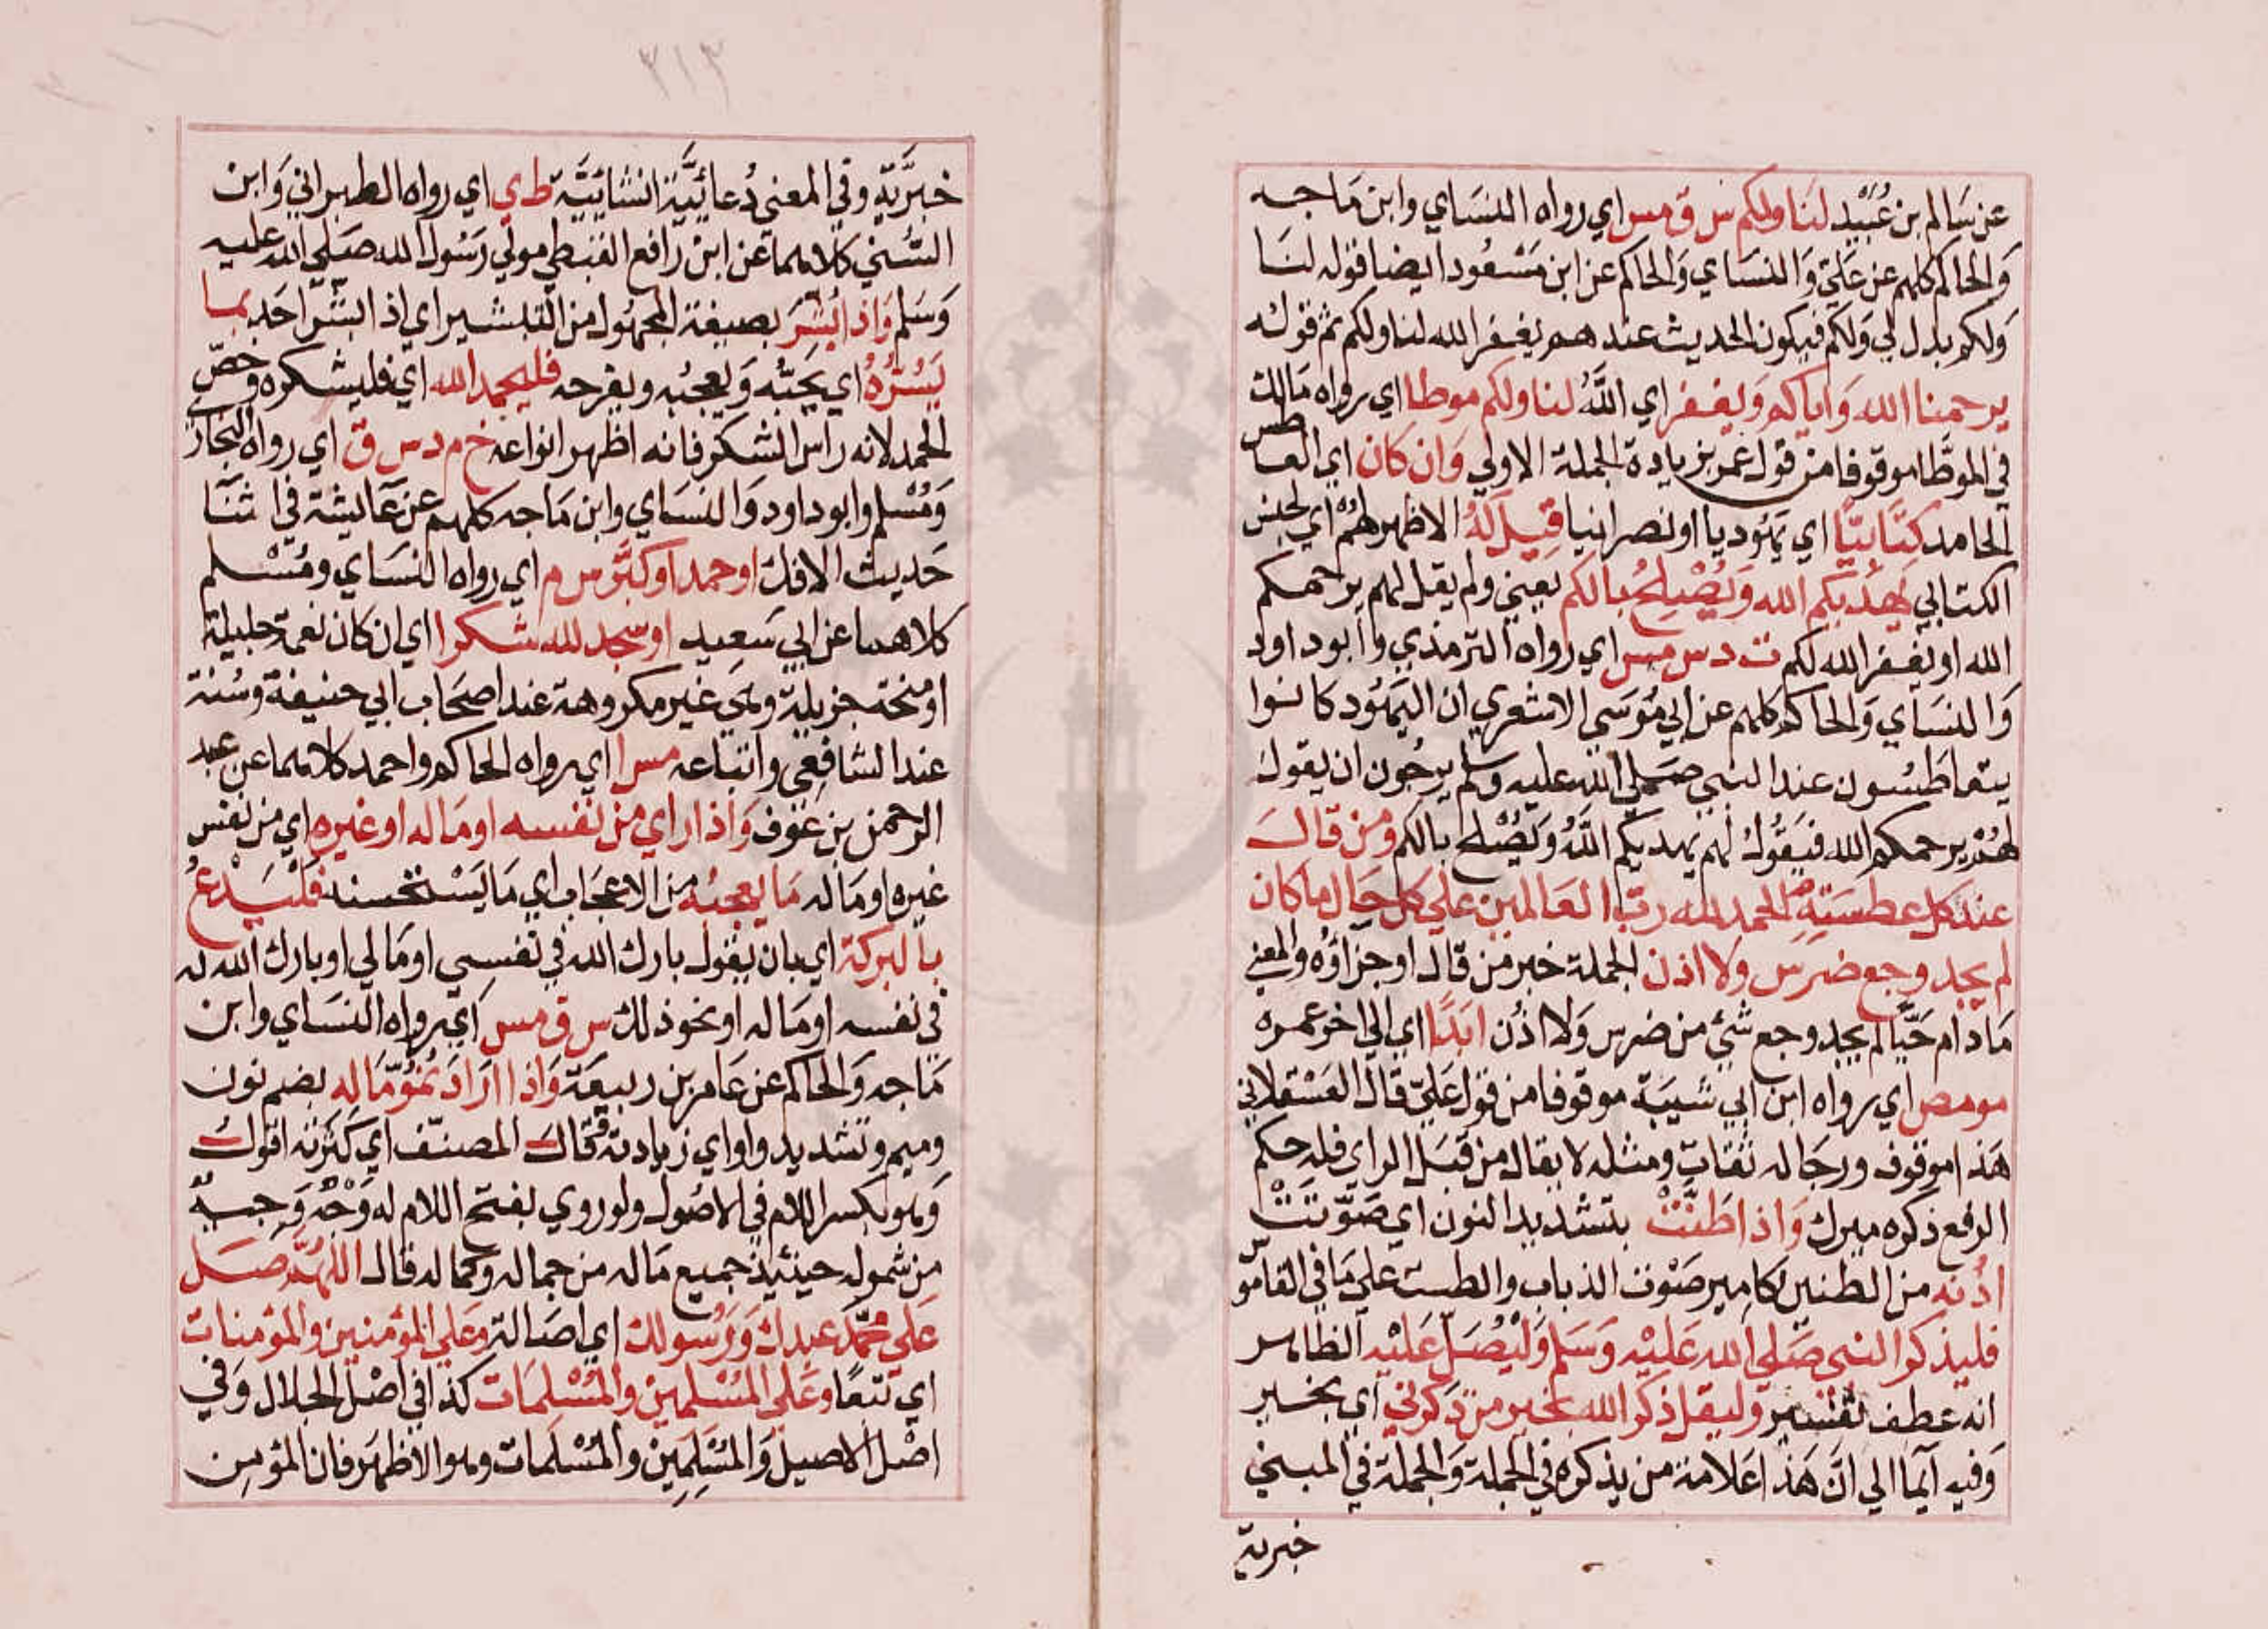 عن سَالم بن عُبَيْد لنَا ولكم س ق مس اي رواه النسَاي وابن مَاجه
وَالحاكم كلهم عن عَليّ وَالنسَاي وَالحاكم عن ابن مَسْعُود ايضا قوله لنَا
وَلكم بدل لي وَلكم فيكون الحديث عندهم يغفر الله لنا ولكم ثم قوله
يرحمنا الله وَاياكم وَيغفر اي اللَّهُ لنا ولكم موطا اي رواه مَالك
في الموطَّا موقوفا من قول عمر بزيادة الجملة الاولي وَان كان اي العاطس
الحامد كتَابيًّا اي يَهُوديا او نصرانيا قِيلَ لَهُ الاظهر لهُمْ اي لجنس
الكتابي يَهْدِيكم الله وَيُصْلِحُ بالكم يعني ولم يقل لهم يرحمكم
الله او يغفر الله لكم ت د س مس اي رواه الترمذي وابوداود
وَالنسَاي وَالحاكم كلهم عن ابي مُوسَي الاشعري ان اليَهُود كانوا
يتعاطسُون عند النبي صَلي الله عليه وسلم يرجُون ان يقول
لهُمْ يرحمكم الله فيَقُولُ لهم يهديكم اللَّهُ وَيُصْلح بالكم ومن قالَ
عند كل عطسَةٍ الحمد لله ربّ العَالمين علي كل حَال ما كان
لم يجد وجع ضرس ولا اذن الجملة خبر من قال او جزاؤه والمعني
مَا دام حَيًّا لم يجد وجع شئ من ضرس وَلا اذُن ابَدًا اي الي اخر عمره
مو مص اي رواه ابن ابي شَيبَة موقوفا من قول عَليّ قال العَسْقلاني
هَذا موقوف ورجَاله ثقات ومثله لا يقال من قبَل الراي فله حكم
الرفع ذكره ميرك وَاذا طَنَّتْ بتشديد النون اي صَوَّتَتْ
اذُنه من الطنين كامير صَوْت الذباب والطست علي مَا في القاموس
فليذكر النبي صَلي الله عَليْه وَسَلم وَلْيُصَلّ عَليْه الظاهر
انه عطف تفسير وليقل ذكر الله بخير من ذكرني اي بخير
وَفيه ايمَا الي انَّ هَذا عَلامَة من يذكره في الجملة وَالجملة في المبني
خبرية
٣١٣
خبَرِيَّة وفي المعني دُعائيَّة انشائيَّة ط ي اي رواه الطبراني وَابن
السُّني كلاهما عن ابن رَافع القبطي مولي رَسُول الله صَلي الله عليه
وَسَلم وَاذا بُشِّرَ بصيغة المجهُول من التبشير اي اذا بشّر احَد بما
يَسُرُّهُ اي يحبّه وَيعجبُه ويفرحه فليحمد الله اي فليشكره وخصّ
الحمد لانه راس الشكر فانه اظهر انواعه خ م د س ق اي رواه البخاري
وَمُسْلم وابوداود وَالنسَاي وابن مَاجه كلهم عن عَايشة في اثنَا
حَديث الافك او حمد او كبَّر س م اي رواه النسَاي ومُسْلم
كلاهما عن ابي سَعِيد او سجد لله شكرا اي ان كان نعمة جليلة
او منحة جزيلة وهي غير مكروهة عند اصحَاب ابي حنيفة وسُنة
عند الشافعي واتباعه مس ا اي رواه الحاكم واحمد كلاهما عن عبد
الرحمن بن عَوْف وَاذا راي من نفسه او مَاله او غيره اي من نفس
غيره او مَاله مَا يعجبُه من الاعجَاب اي مَا يَسْتحسنه فَلْيَدْعُ
بالبركة اي بان يقول بارك الله في نفسي او مَالي او بارك الله له
في نفسه او مَاله او نحو ذلك س ق مس اي رواه النسَاي وابن
مَاجه وَالحاكم عن عَامر بن ربيعَة وَاذا ارَادَ نُمُوَّ مَاله بضم نون
وميم وتشديد واو اي زيادته قَالَ المصنّف اي كثرته اقول
وَهو بكسر اللام في الاصُول ولو روي بفتح اللام له وَجْه وَجيه
من شموله حينئذ جميع مَاله من جماله وكماله قال اللهُمَّ صَل
عَلي محمّد عبدك وَرسُولك اي اصَالة وعَلي المؤمنين والمؤمنات
اي تبَعًا وعَلي المُسْلمِين والمُسْلمَات كذا في اصْل الجلال وَفي
اصْل الاصيل وَالمُسْلِمِيْن والمُسْلمات وهو الاظهَر فان المؤمن